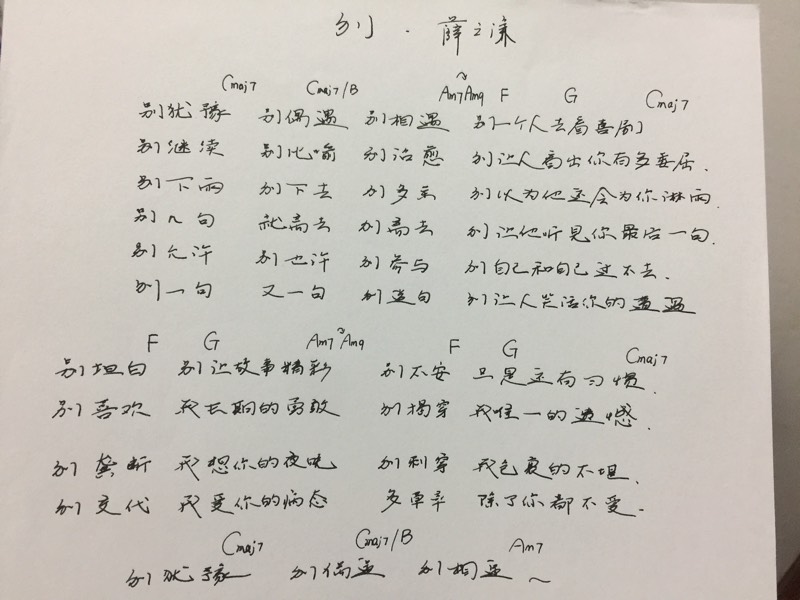 别 . 薛之谦
Cmaj7 Cmaj7/B Am7 Am9 F G Cmaj7
别犹豫 别偶遇 别相遇 别一个人去看喜剧
别继续 别比喻 别治愈 别让人看出你有多委屈.
别下雨 别下去 别多云 别以为他还会为你淋雨.
别几句 就离去 别离去 别让他听见你最后一句.
别允许 别也许 别参与 别自己和自己过不去.
别一句 又一句 别造句 别让人笑话你的遭遇
F G Am7 Am9 F G Cmaj7
别坦白 别让故事精彩 别不安 只是还有习惯.
别喜欢 我长期的勇敢 别揭穿 我唯一的遗憾.
别垄断 我想你的夜晚 别刺穿 我包裹的不堪.
别交代 我爱你的病态 多草率 除了你都不爱.
Cmaj7 Cmaj7/B Am7
别犹豫 别偶遇 别相遇 ~